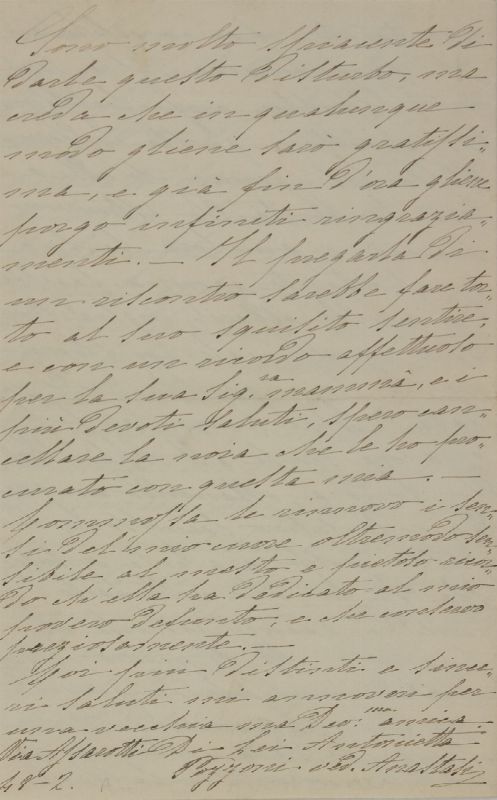 Sono molto spiacente di
darle questo disturbo, ma
creda che in qualunque
modo gliene sarò gratissi-
ma, e già fin d'ora gliene
porgo infiniti ringrazia-
menti. — Il pregarla di
un riscontro sarebbe fare tor-
to al suo squisito sentire,
e con un ricordo affettuoso
per la sua Sig.ra mammà, e i
più devoti saluti, spero can-
cellare la noia che le ho pro-
curato con questa mia. —
Commossa le rinnovo i sen-
si del mio cuore oltremodo sen-
sibile al mesto e pietoso ricor-
do ch'ella ha dedicato al mio
povero defunto, e che conservo
preziosamente. —
Coi più distinti e since-
ri saluti mi annoveri per
una vecchia ma Dev:ma amica
Via Assarotti Di Lei Antonietta
48-2. Pozzoni ved. Anastasi